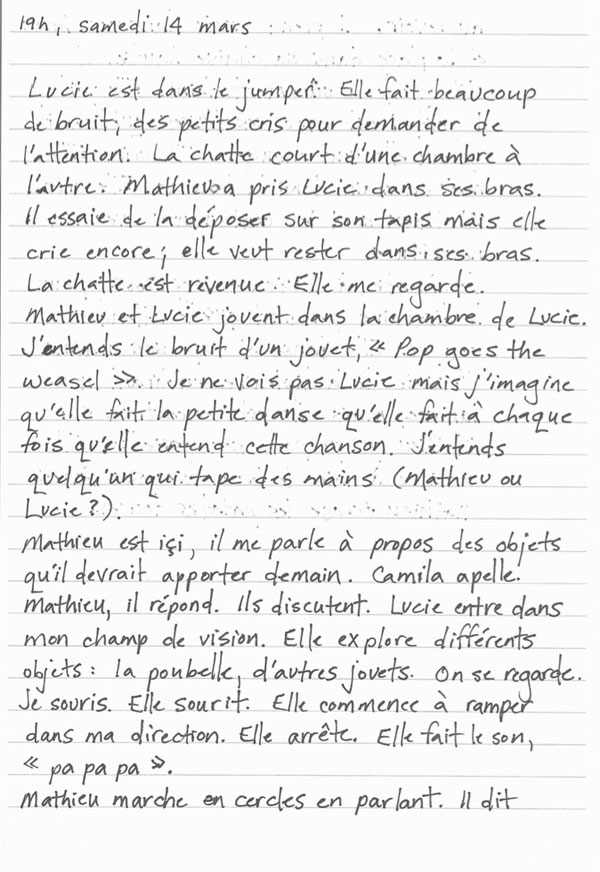 19h, samedi 14 mars
Lucie est dans le jumper. Elle fait beaucoup
de bruit, des petits cris pour demander de
l'attention. La chatte court d'une chambre à
l'autre. Mathieu a pris Lucie dans ses bras.
Il essaie de la déposer sur son tapis mais elle
crie encore; elle veut rester dans ses bras.
La chatte est revenue. Elle me regarde.
Mathieu et Lucie jouent dans la chambre de Lucie.
J'entends le bruit d'un jouet, « Pop goes the
weasel ». Je ne vois pas Lucie mais j'imagine
qu'elle fait la petite danse qu'elle fait à chaque
fois qu'elle entend cette chanson. J'entends
quelqu'un qui tape des mains (Mathieu ou
Lucie ?).
Mathieu est içi, il me parle à propos des objets
qu'il devrait apporter demain. Camila apelle.
Mathieu, il répond. Ils discutent. Lucie entre dans
mon champ de vision. Elle explore différents
objets : la poubelle, d'autres jouets. On se regarde.
Je souris. Elle sourit. Elle commence à ramper
dans ma direction. Elle arrête. Elle fait le son,
« pa pa pa ».
Mathieu marche en cercles en parlant. Il dit